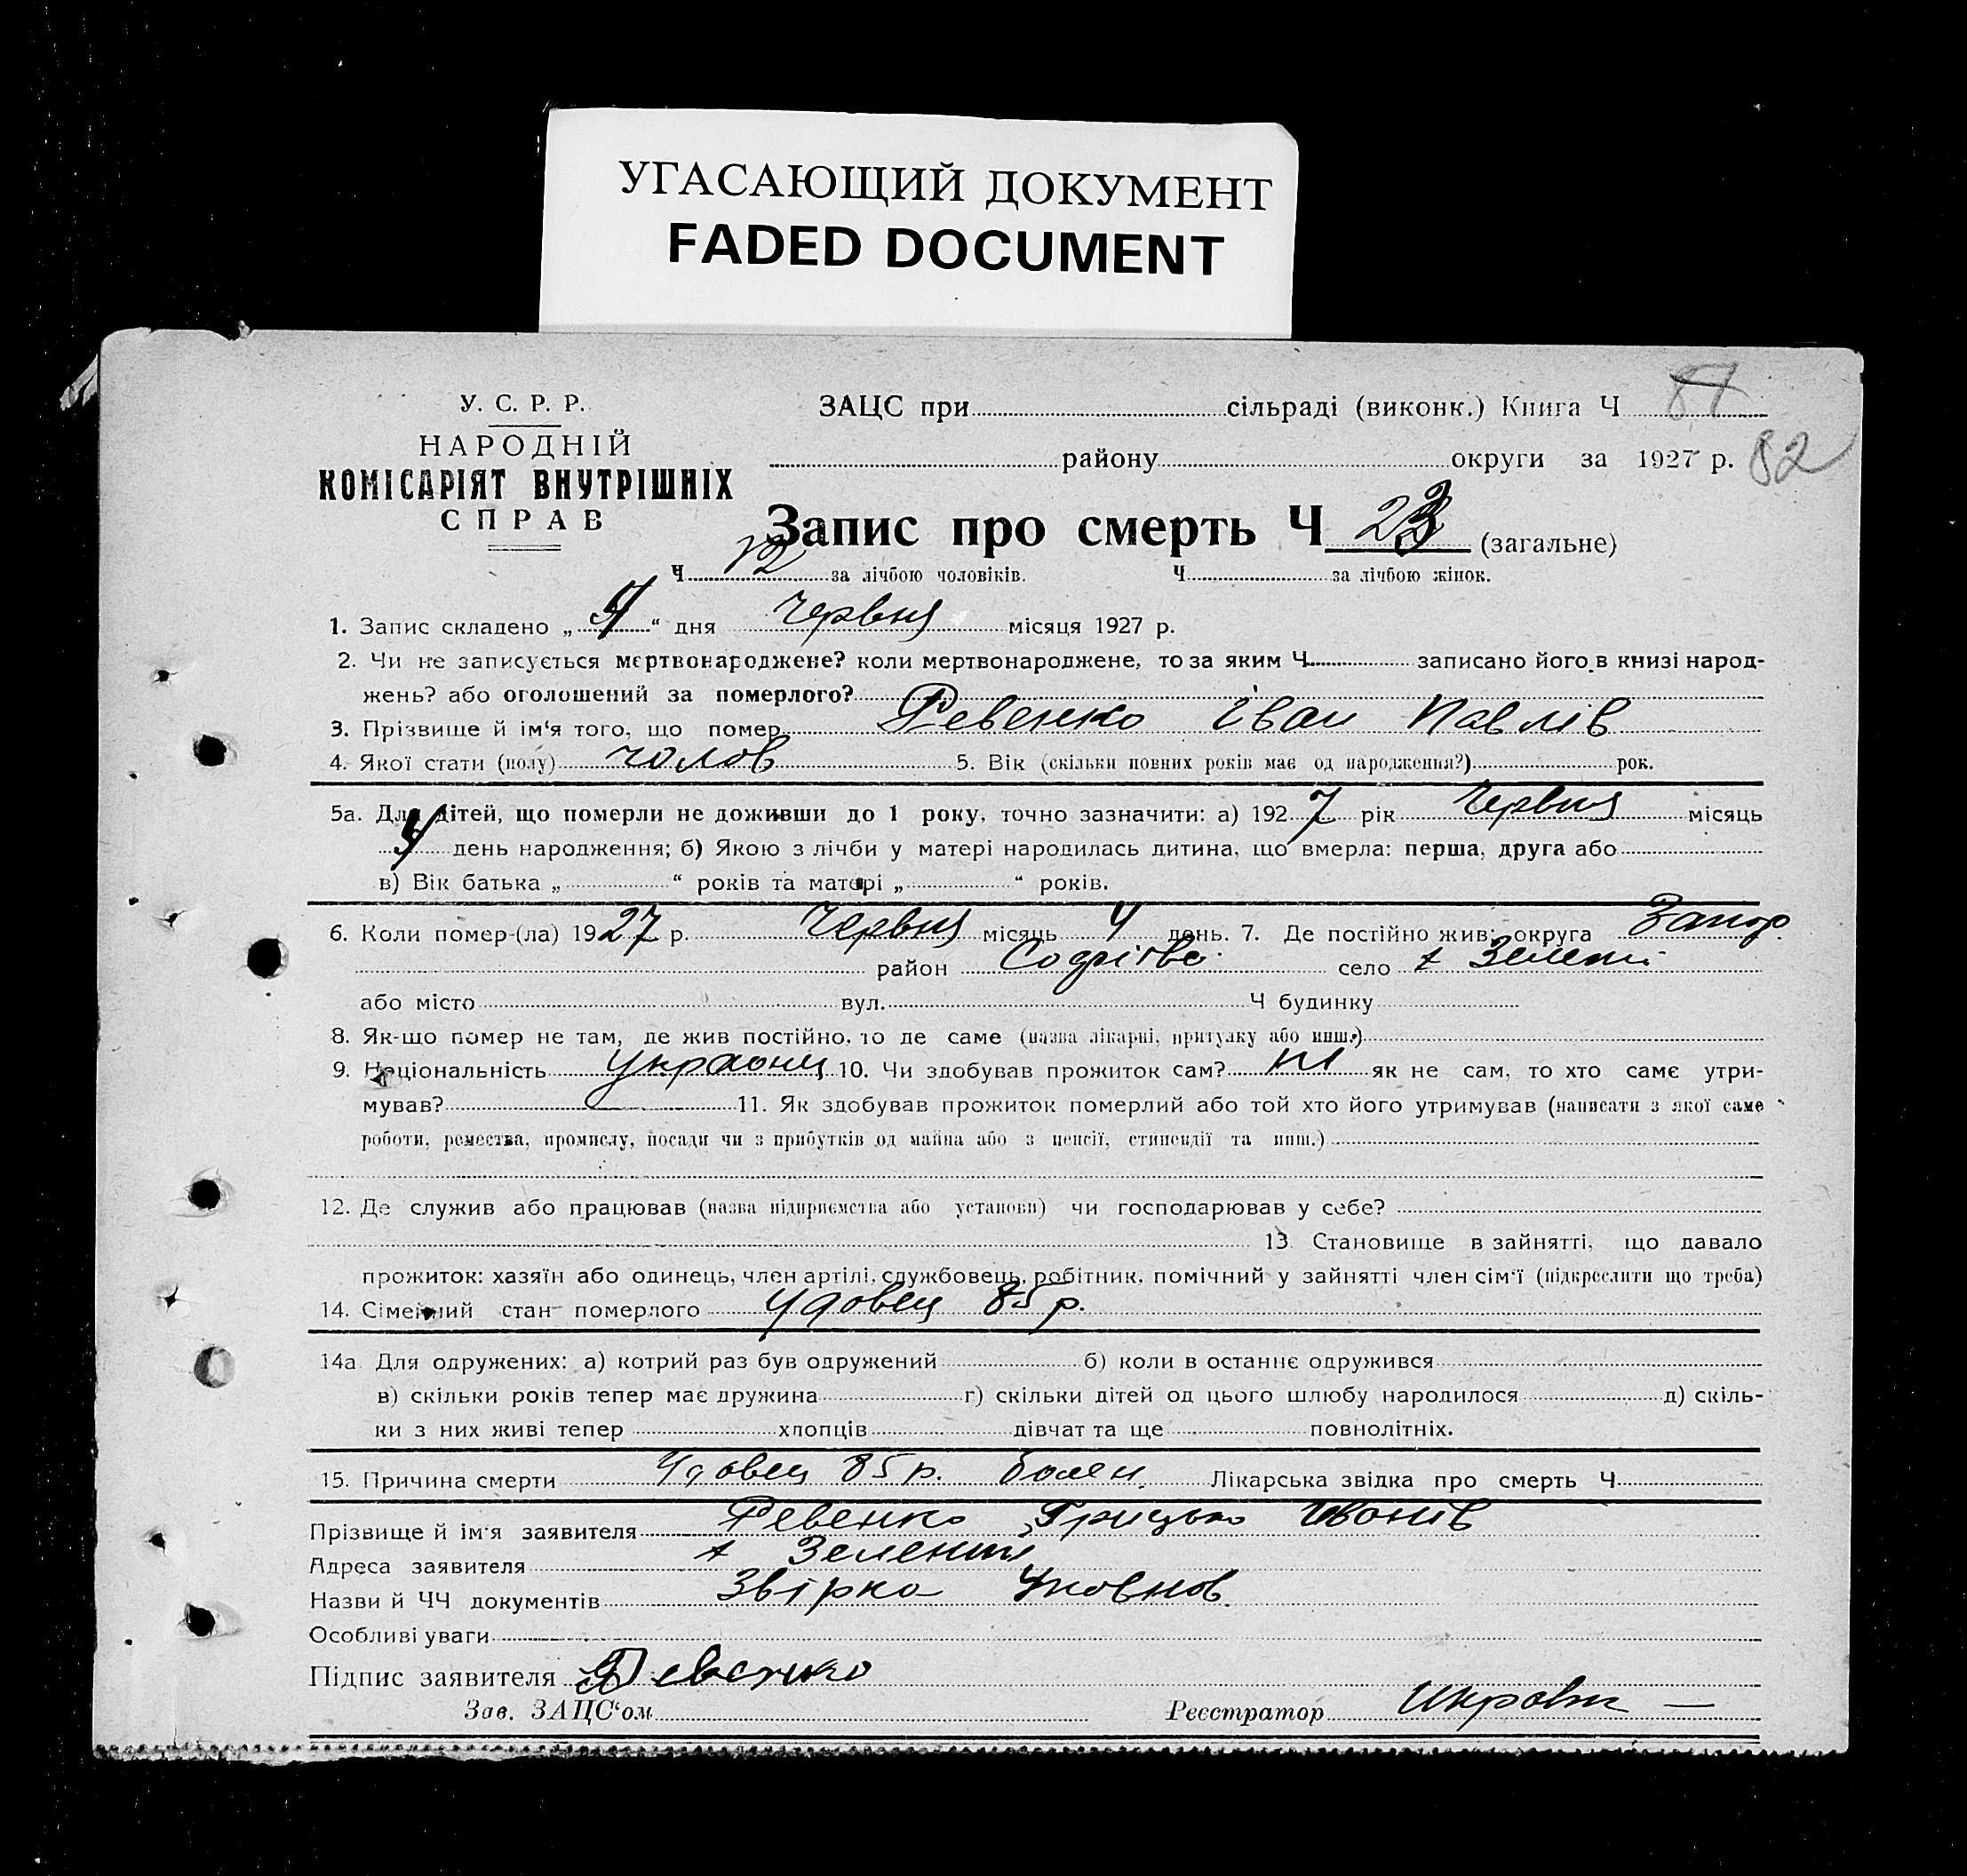 УГАСАЮЩИЙ ДОКУМЕНТ
FADED DOCUMENT
У. С. Р. Р.
НАРОДНІЙ
КОМІСАРІЯТ ВНУТРІШНІХ
СПРАВ
ЗАЦС при сільраді (виконк.) Книга Ч
району округи за 1927 р. 82
Запис про смерть Ч 23 (загальне)
Ч 12 за лічбою чоловіків. Ч за лічбою жінок.
1. Запис складено „ 4 “ дня Червня місяця 1927 р.
2. Чи не записується мертвонароджене? коли мертвонароджене, то за яким Ч. записано його в книзі народ-
жень? або оголошений за померлого?
3. Прізвище й ім‘я того, що помер Ревенко Іван Павлів
4. Якої стати (полу) чолов 5. Вік (скільки повних років має од народження?) рок.
5а. Для дітей, що померли не доживши до 1 року, точно зазначити: а) 1927 рік Червня місяць
4 день народження; б) Якою з лічби у матері народилась дитина, що вмерла: перша, друга або
в) Вік батька „ “ років та матері „ “ років.
6. Коли помер-(ла) 1927 р. Червня місяць 4 день. 7. Де постійно жив: округа Запор
район село х Зелений
або місто вул. Ч будинку
8. Як-що помер не там, де жив постійно, то де саме (назва лікарні, притулку або инш.)
9. Національність україонец 10. Чи здобував прожиток сам? ні як не сам, то хто саме утри-
мував? 11. Як здобував прожиток померлий або той хто його утримував (написати з якої саме
роботи, ремества, промислу, посади чи з прибутків од майна або з пенсії, стипендії та инш.)
12. Де служив або працював (назва підприємства або установи) чи господарював у себе?
13. Становище в зайнятті, що давало
прожиток: хазяїн або одинець, член артілі, службовець, робітник, помічний у зайнятті член сім‘ї (підкреслити що треба)
14. Сімейний стан померлого Удовец 85 р.
14а. Для одружених: а) котрий раз був одружений б) коли в останнє одружився
в) скільки років тепер має дружина г) скільки дітей од цього шлюбу народилося д) скіль-
ки з них живі тепер хлопців дівчат та ще повнолітніх.
15. Причина смерти Удовец 85 р. Лікарська звідка про смерть Ч
Прізвище й ім‘я заявителя Ревенко Грицько Іванів
Адреса заявителя х Зелений
Назви й ЧЧ документів Звірка
Особливі уваги
Підпис заявителя Ревенко
Зав. ЗАЦС‘ом
Реєстратор